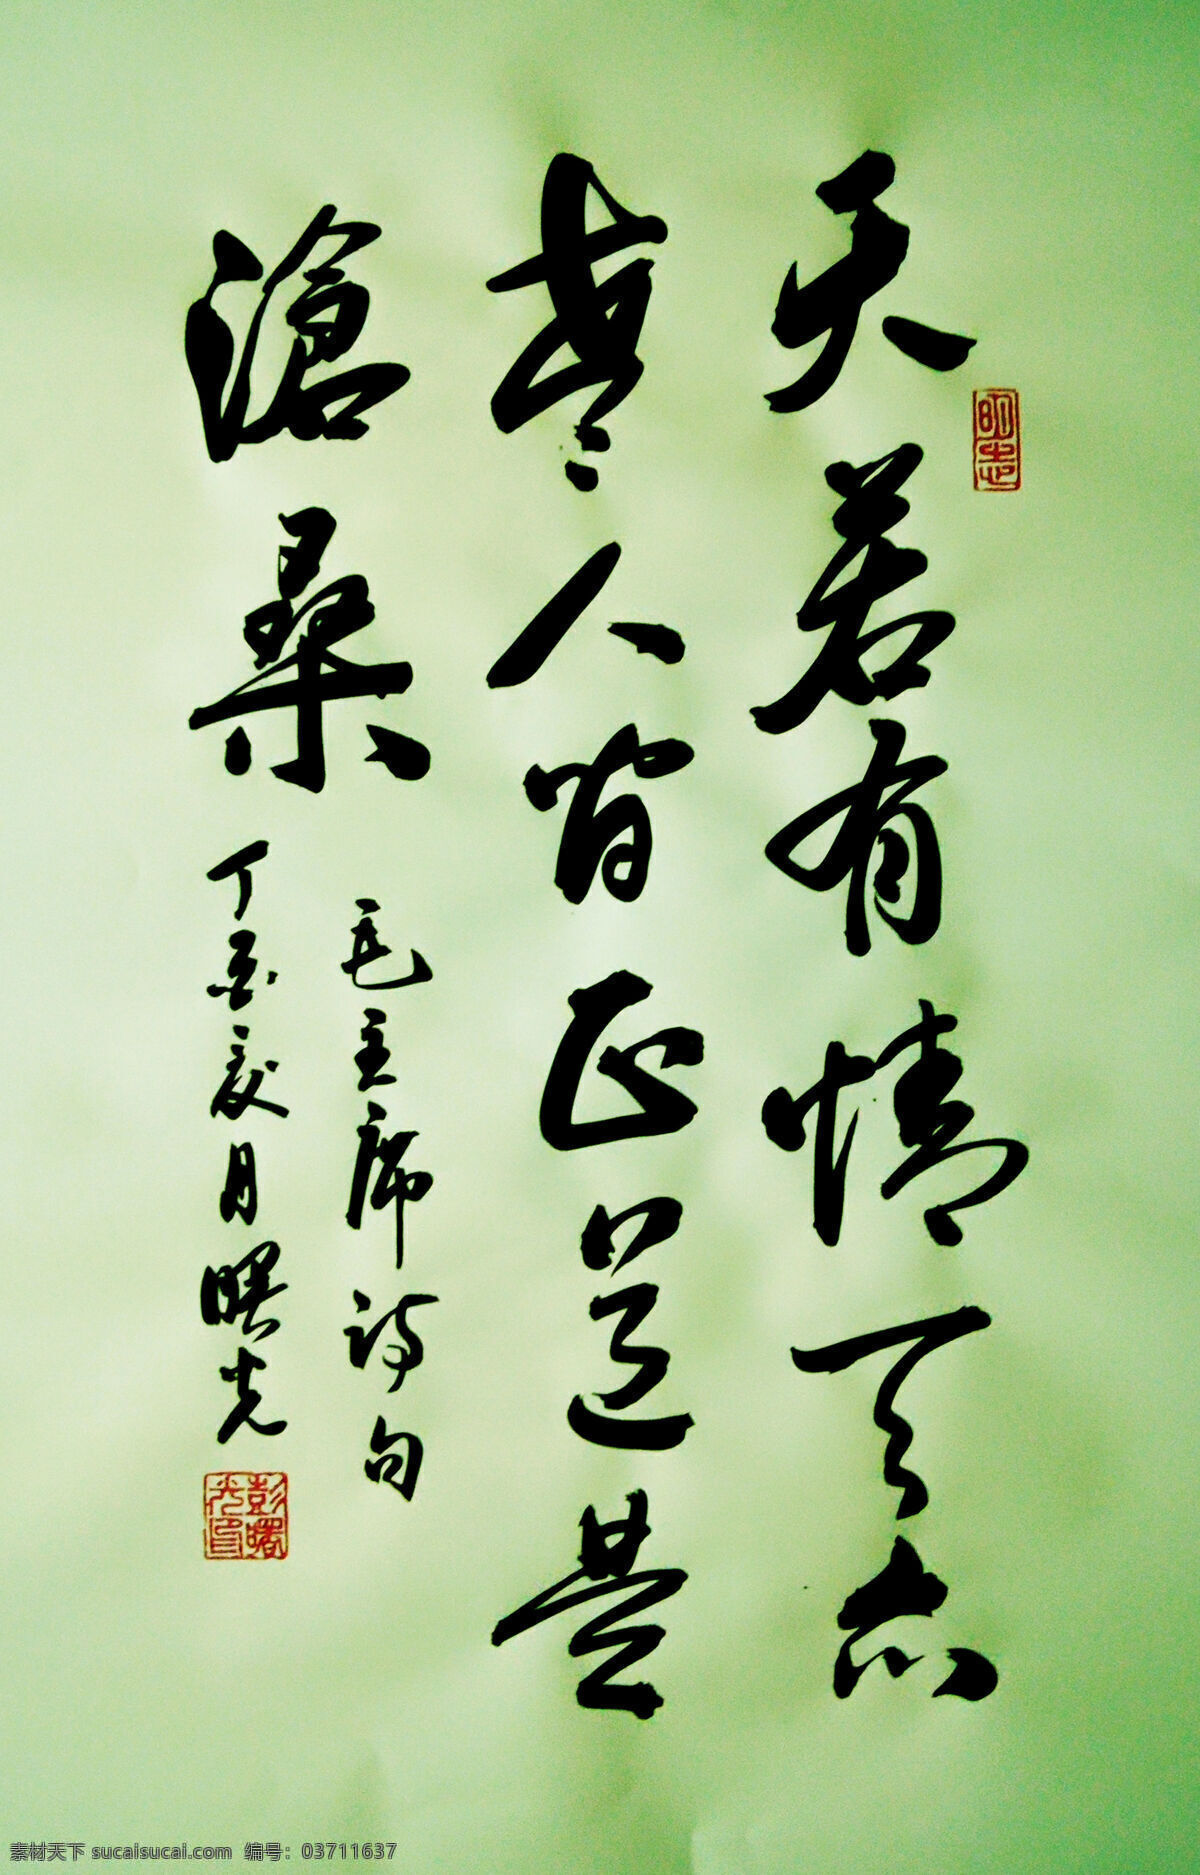 天若有情天亦
老人間正道是
滄桑
毛主席詩句
丁夏月曙光
明志
彭曙光印
素材天下 sucaisucai.com 编号：03711637